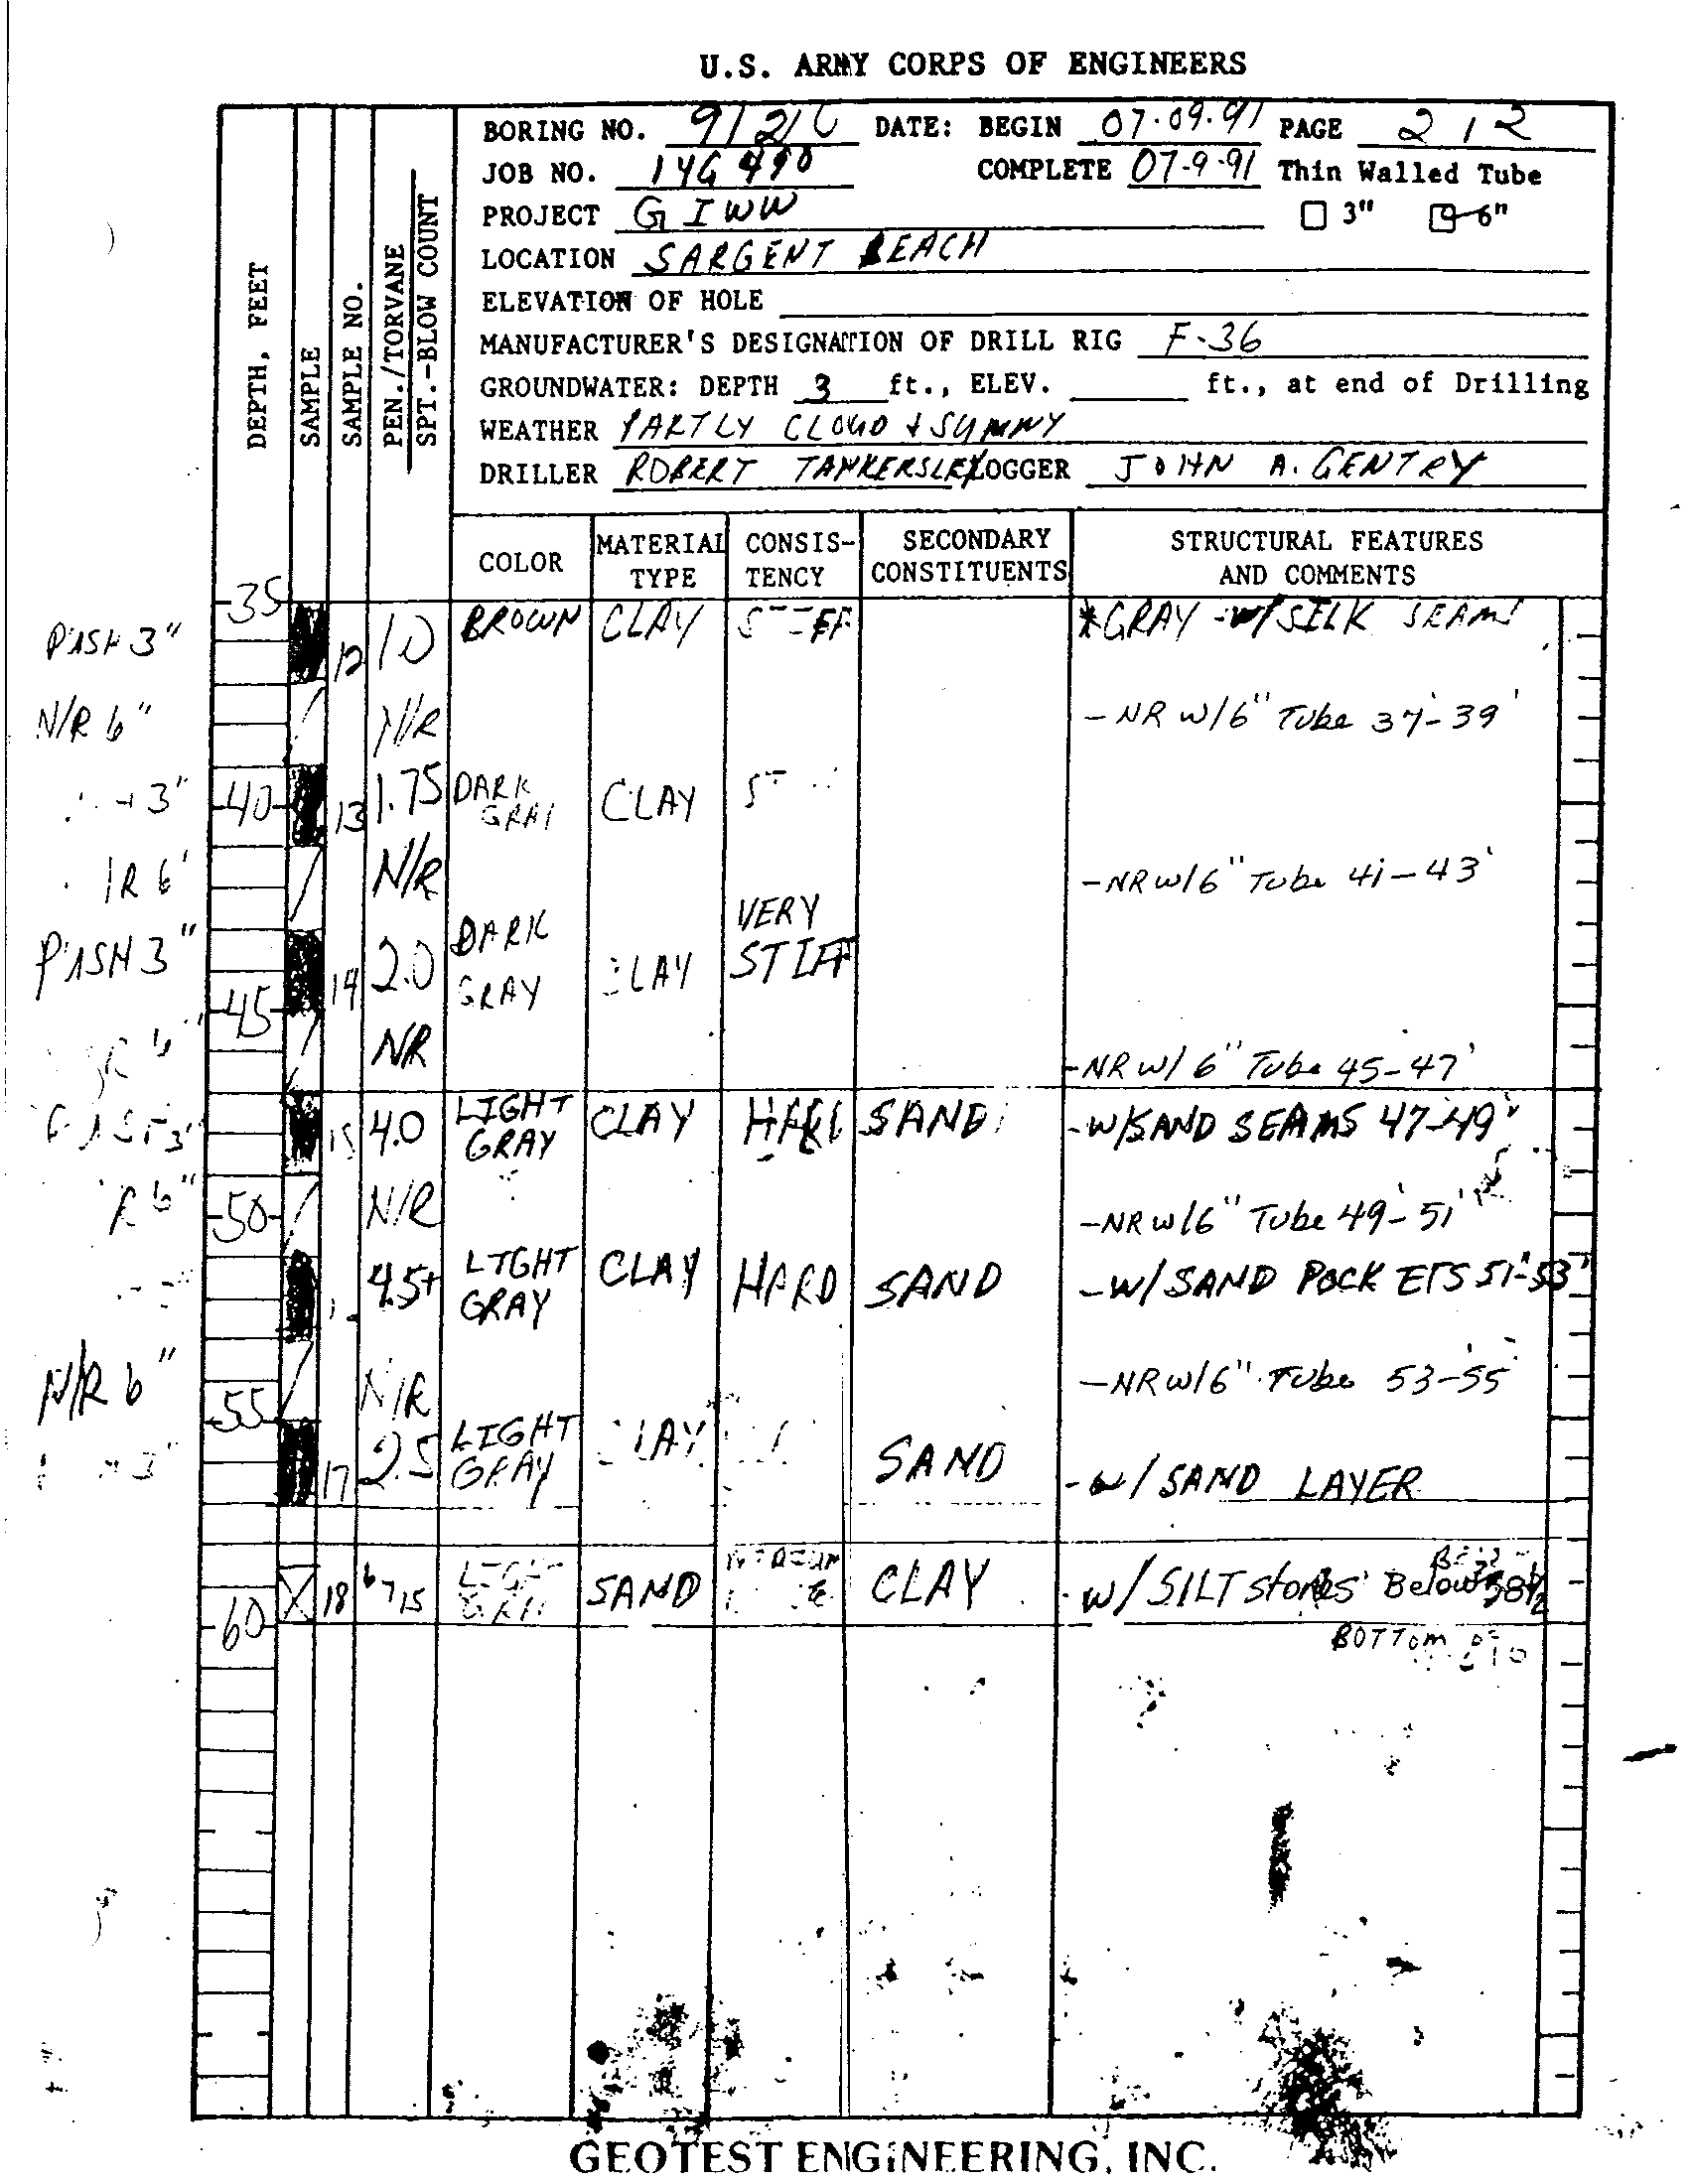 U.S. ARMY CORPS OF ENGINEERS
BORING NO. DATE: BEGIN 07·09·91 PAGE 2 / 2
JOB NO. 14G 490 COMPLETE 07-9-91 Thin Walled Tube
PROJECT GIWW 3" 6"
LOCATION SARGENT BEACH
ELEVATION OF HOLE
MANUFACTURER'S DESIGNATION OF DRILL RIG F-36
GROUNDWATER: DEPTH 3 ft., ELEV. ft., at end of Drilling
WEATHER PARTLY CLOUD & SUNNY
DRILLER ROBERT TANKERSLEY LOGGER JOHN A. GENTRY
DEPTH, FEET
SAMPLE
SAMPLE NO.
PEN./TORVANE
SPT.-BLOW COUNT
COLOR MATERIAL TYPE CONSIS-TENCY SECONDARY CONSTITUENTS STRUCTURAL FEATURES AND COMMENTS
35
PUSH 3" 12 1.0 BROWN CLAY *GRAY W/ SILK SEAMS
N/R 6" N/R - NR W/6" Tube 37-39'
3" 40 13 1.75 DARK GRAY CLAY
6' N/R - NR W/6" Tube 41-43'
PUSH 3" 14 2.0 DARK GRAY CLAY VERY STIFF
45
NR - NR W/ 6" Tube 45-47'
15 4.0 LIGHT GRAY CLAY HARD SAND - W/SAND SEAMS 47-49'
R 6" 50 N/R - NR W/6" Tube 49'-51'
4.5+ LIGHT GRAY CLAY HARD SAND - W/ SAND POCKETS 51'-53'
N/R 6" N/R - NR W/6" Tube 53-55'
55
3" 17 2.5 LIGHT GRAY CLAY SAND - W/ SAND LAYER
18 6 7 15 LIGHT SAND MEDIUM CLAY - W/ SILT stones Below 58½
60
BOTTOM
GEOTEST ENGINEERING, INC.